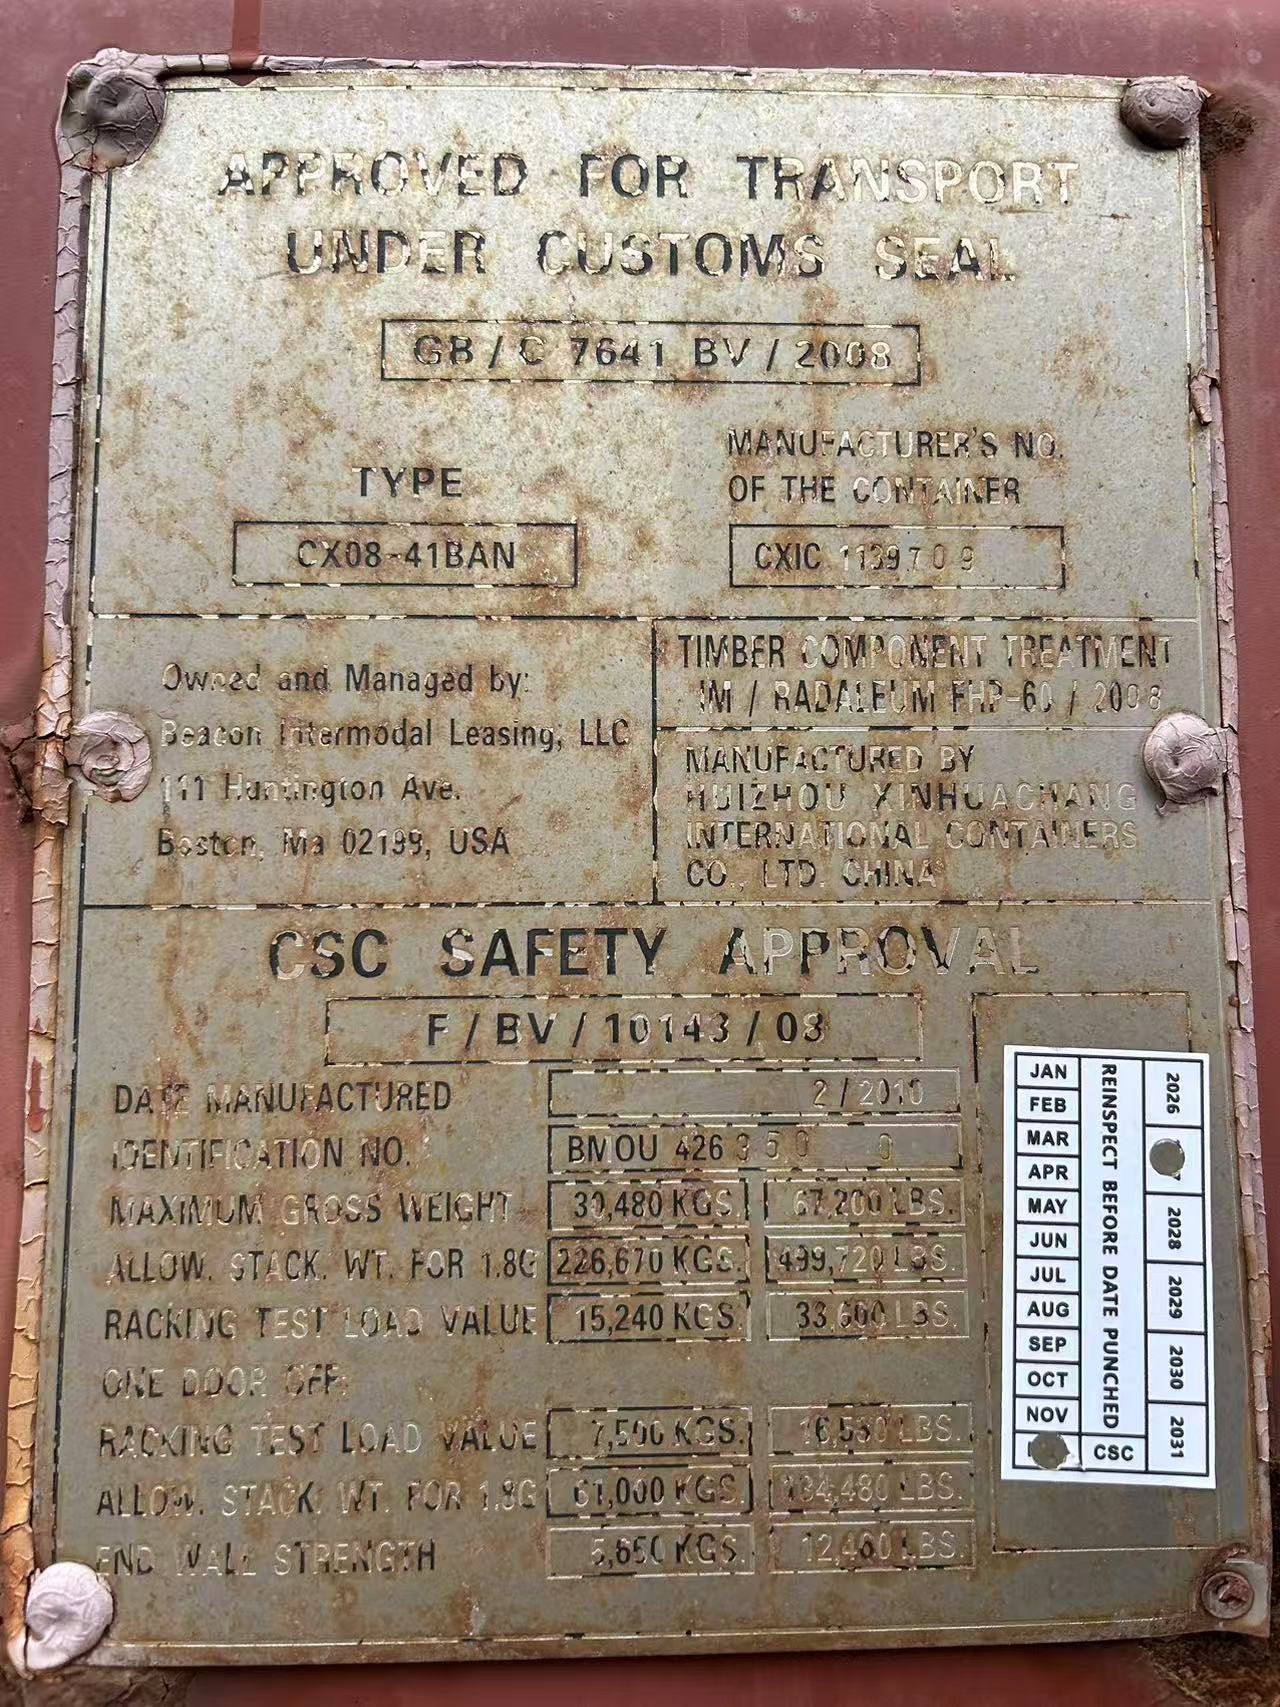 APPROVED FOR TRANSPORT
UNDER CUSTOMS SEAL
GB / C 7641 BV / 2008
TYPE
CX08-41BAN
MANUFACTURER'S NO.
OF THE CONTAINER
CXIC 1139709
Owned and Managed by:
Beacon Intermodal Leasing, LLC
111 Huntington Ave.
Boston, Ma 02199, USA
TIMBER COMPONENT TREATMENT
IM / RADALEUM FHP-60 / 2008
MANUFACTURED BY
HUIZHOU XINHUACHANG
INTERNATIONAL CONTAINERS
CO., LTD. CHINA
CSC SAFETY APPROVAL
F / BV / 10143 / 08
DATE MANUFACTURED 2 / 2010
IDENTIFICATION NO. BMOU 426350 0
MAXIMUM GROSS WEIGHT 30,480 KGS. 67,200 LBS.
ALLOW. STACK. WT. FOR 1.8G 226,670 KGS. 499,720 LBS.
RACKING TEST LOAD VALUE 15,240 KGS. 33,600 LBS.
ONE DOOR OFF:
RACKING TEST LOAD VALUE 7,500 KGS. 16,530 LBS.
ALLOW. STACK. WT. FOR 1.8G 61,000 KGS. 134,480 LBS.
END WALL STRENGTH 5,650 KGS. 12,460 LBS.
JAN
FEB
MAR
APR
MAY
JUN
JUL
AUG
SEP
OCT
NOV
REINSPECT BEFORE DATE PUNCHED
CSC
2026
2028
2029
2030
2031